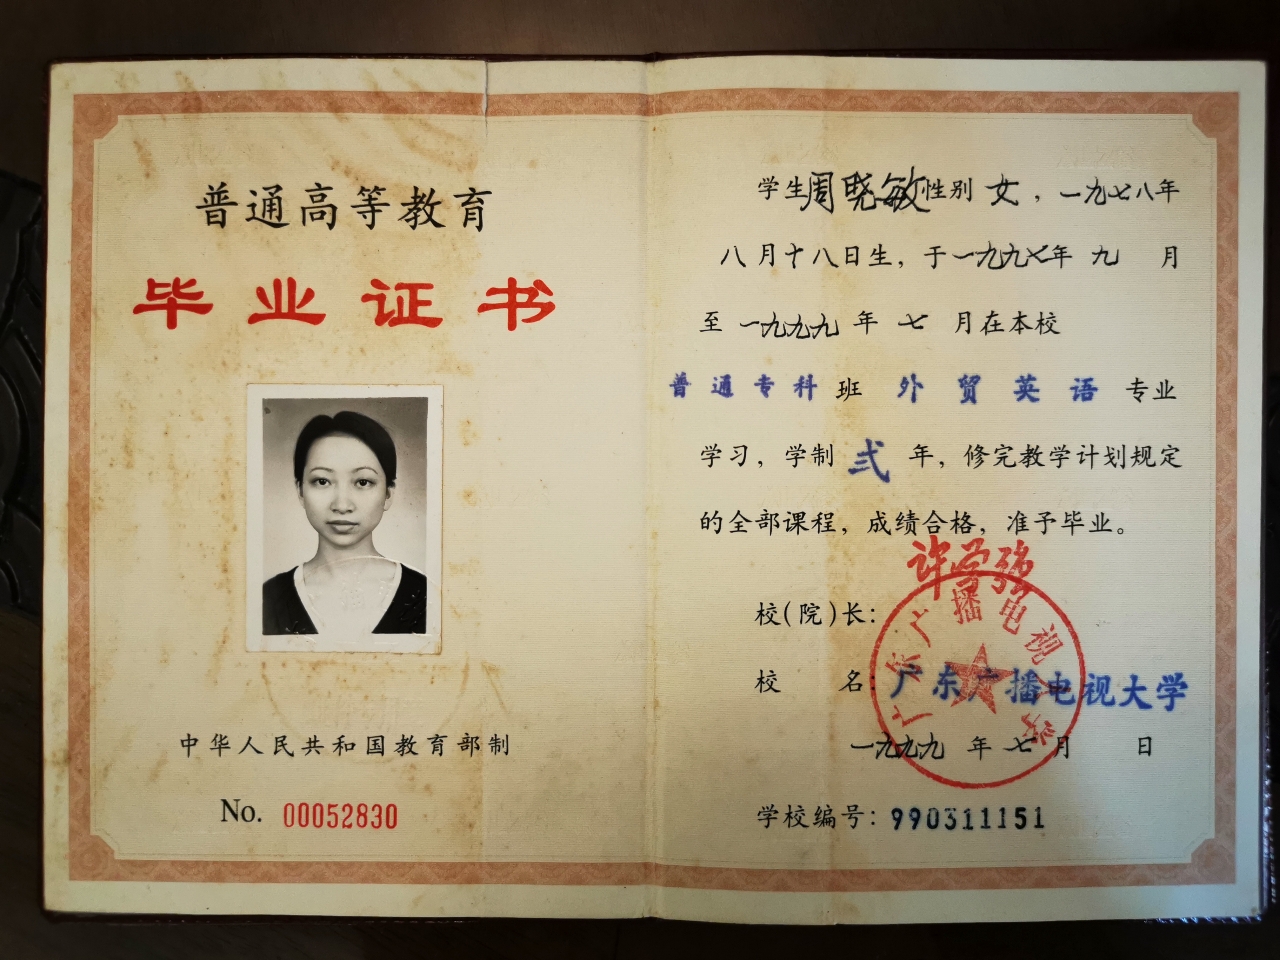 普通高等教育
毕业证书
中华人民共和国教育部制
No. 00052830
学生周晓敏性别女，一九七八年
八月十八日生，于一九九七年九月
至一九九九年七月在本校
普通专科班外贸英语专业
学习，学制贰年，修完教学计划规定
的全部课程，成绩合格，准予毕业。
许学强
校(院)长：
广东广播电视大学
校名：广东广播电视大学
一九九九年七月 日
学校编号：990311151